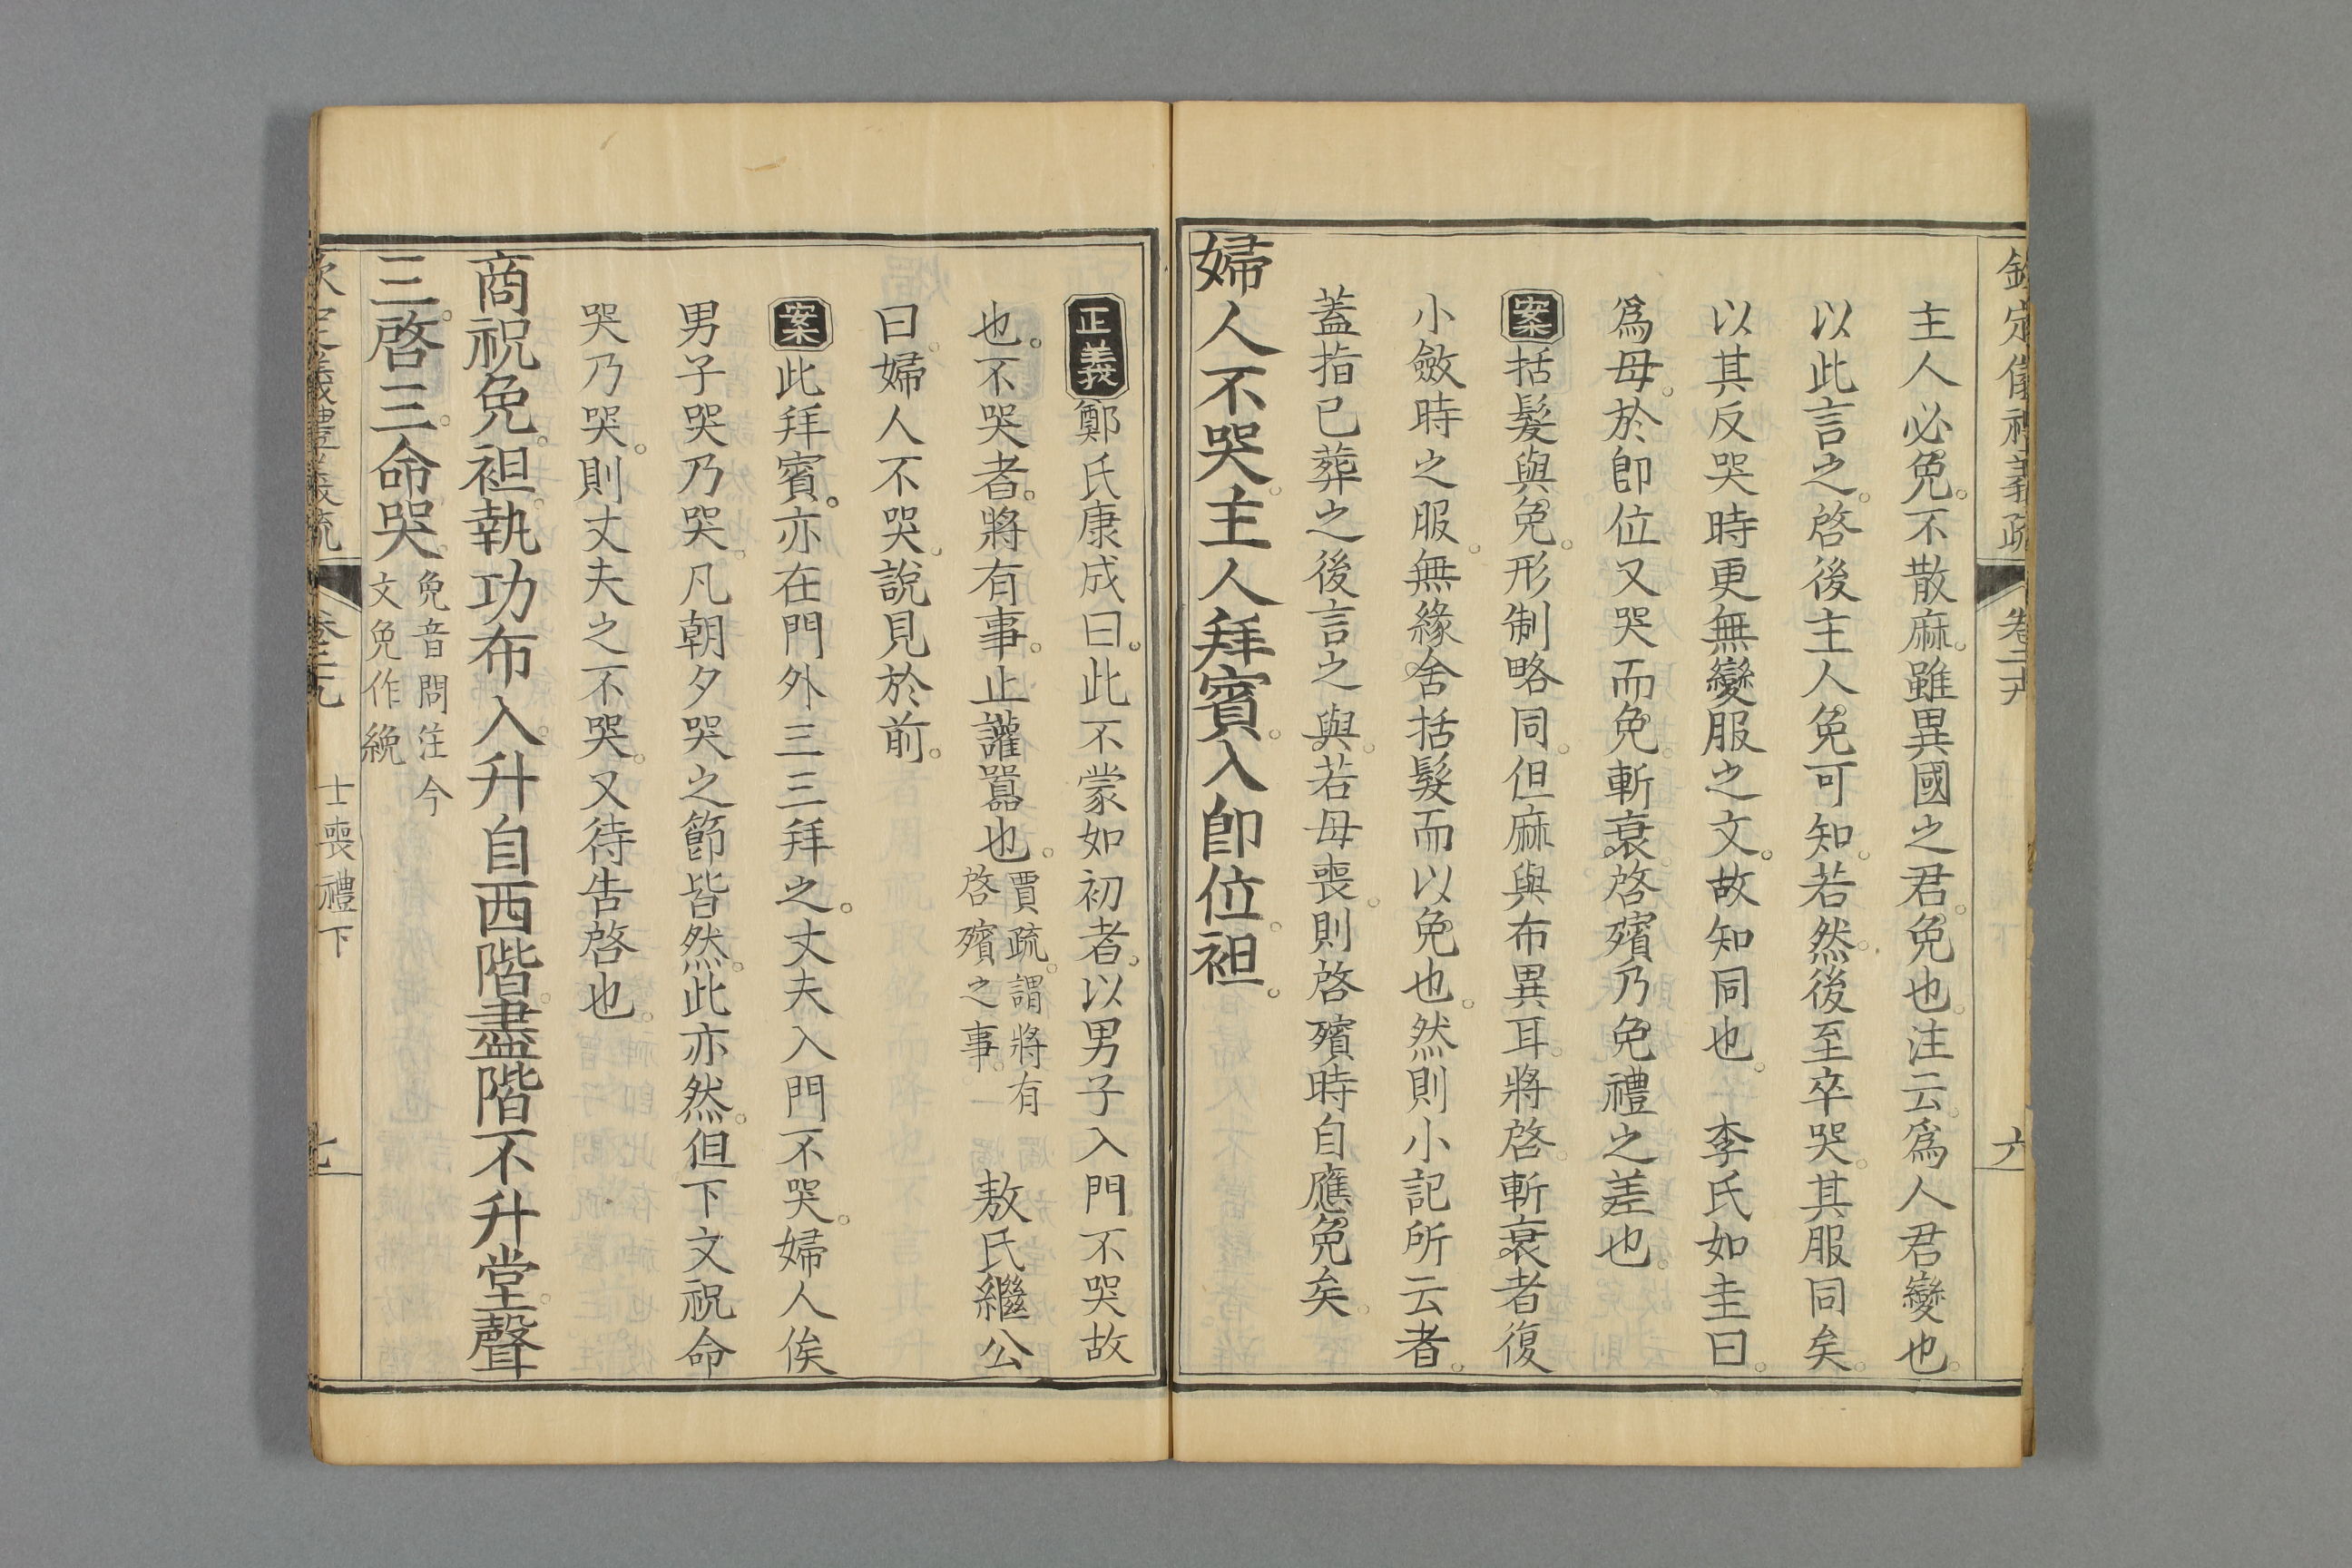 欽定儀禮義疏 卷二十九 六
主人必免。不散麻。雖異國之君。免也。注云。爲人君變也。
以此言之。啓後主人免可知。若然。後至卒哭。其服同矣。
以其反哭時更無變服之文。故知同也。 李氏如圭曰。
爲母。於卽位又哭而免。斬衰。啓殯乃免。禮之差也。
案括髮與免。形制略同。但麻與布異耳。將啓。斬衰者復
小斂時之服。無緣舍括髮而以免也。然則小記所云者。
蓋指已葬之後言之與。若母喪。則啓殯時自應免矣。
婦人不哭。主人拜賓。入卽位。袒。
正義鄭氏康成曰。此不蒙如初者。以男子入門不哭故
也。不哭者。將有事。止讙嚻也。賈疏。謂將有啓殯之事。 敖氏繼公
曰。婦人不哭。說見於前。
案此拜賓。亦在門外三三拜之。丈夫入門不哭。婦人俟
男子哭乃哭。凡朝夕哭之節皆然。此亦然。但下文祝命
哭乃哭。則丈夫之不哭。又待告啓也。
商祝免。袒。執功布入。升自西階。盡階。不升堂。聲
三。啓三。命哭。免音問注今文免作絻
欽定儀禮義疏 卷二十九 士喪禮下 七